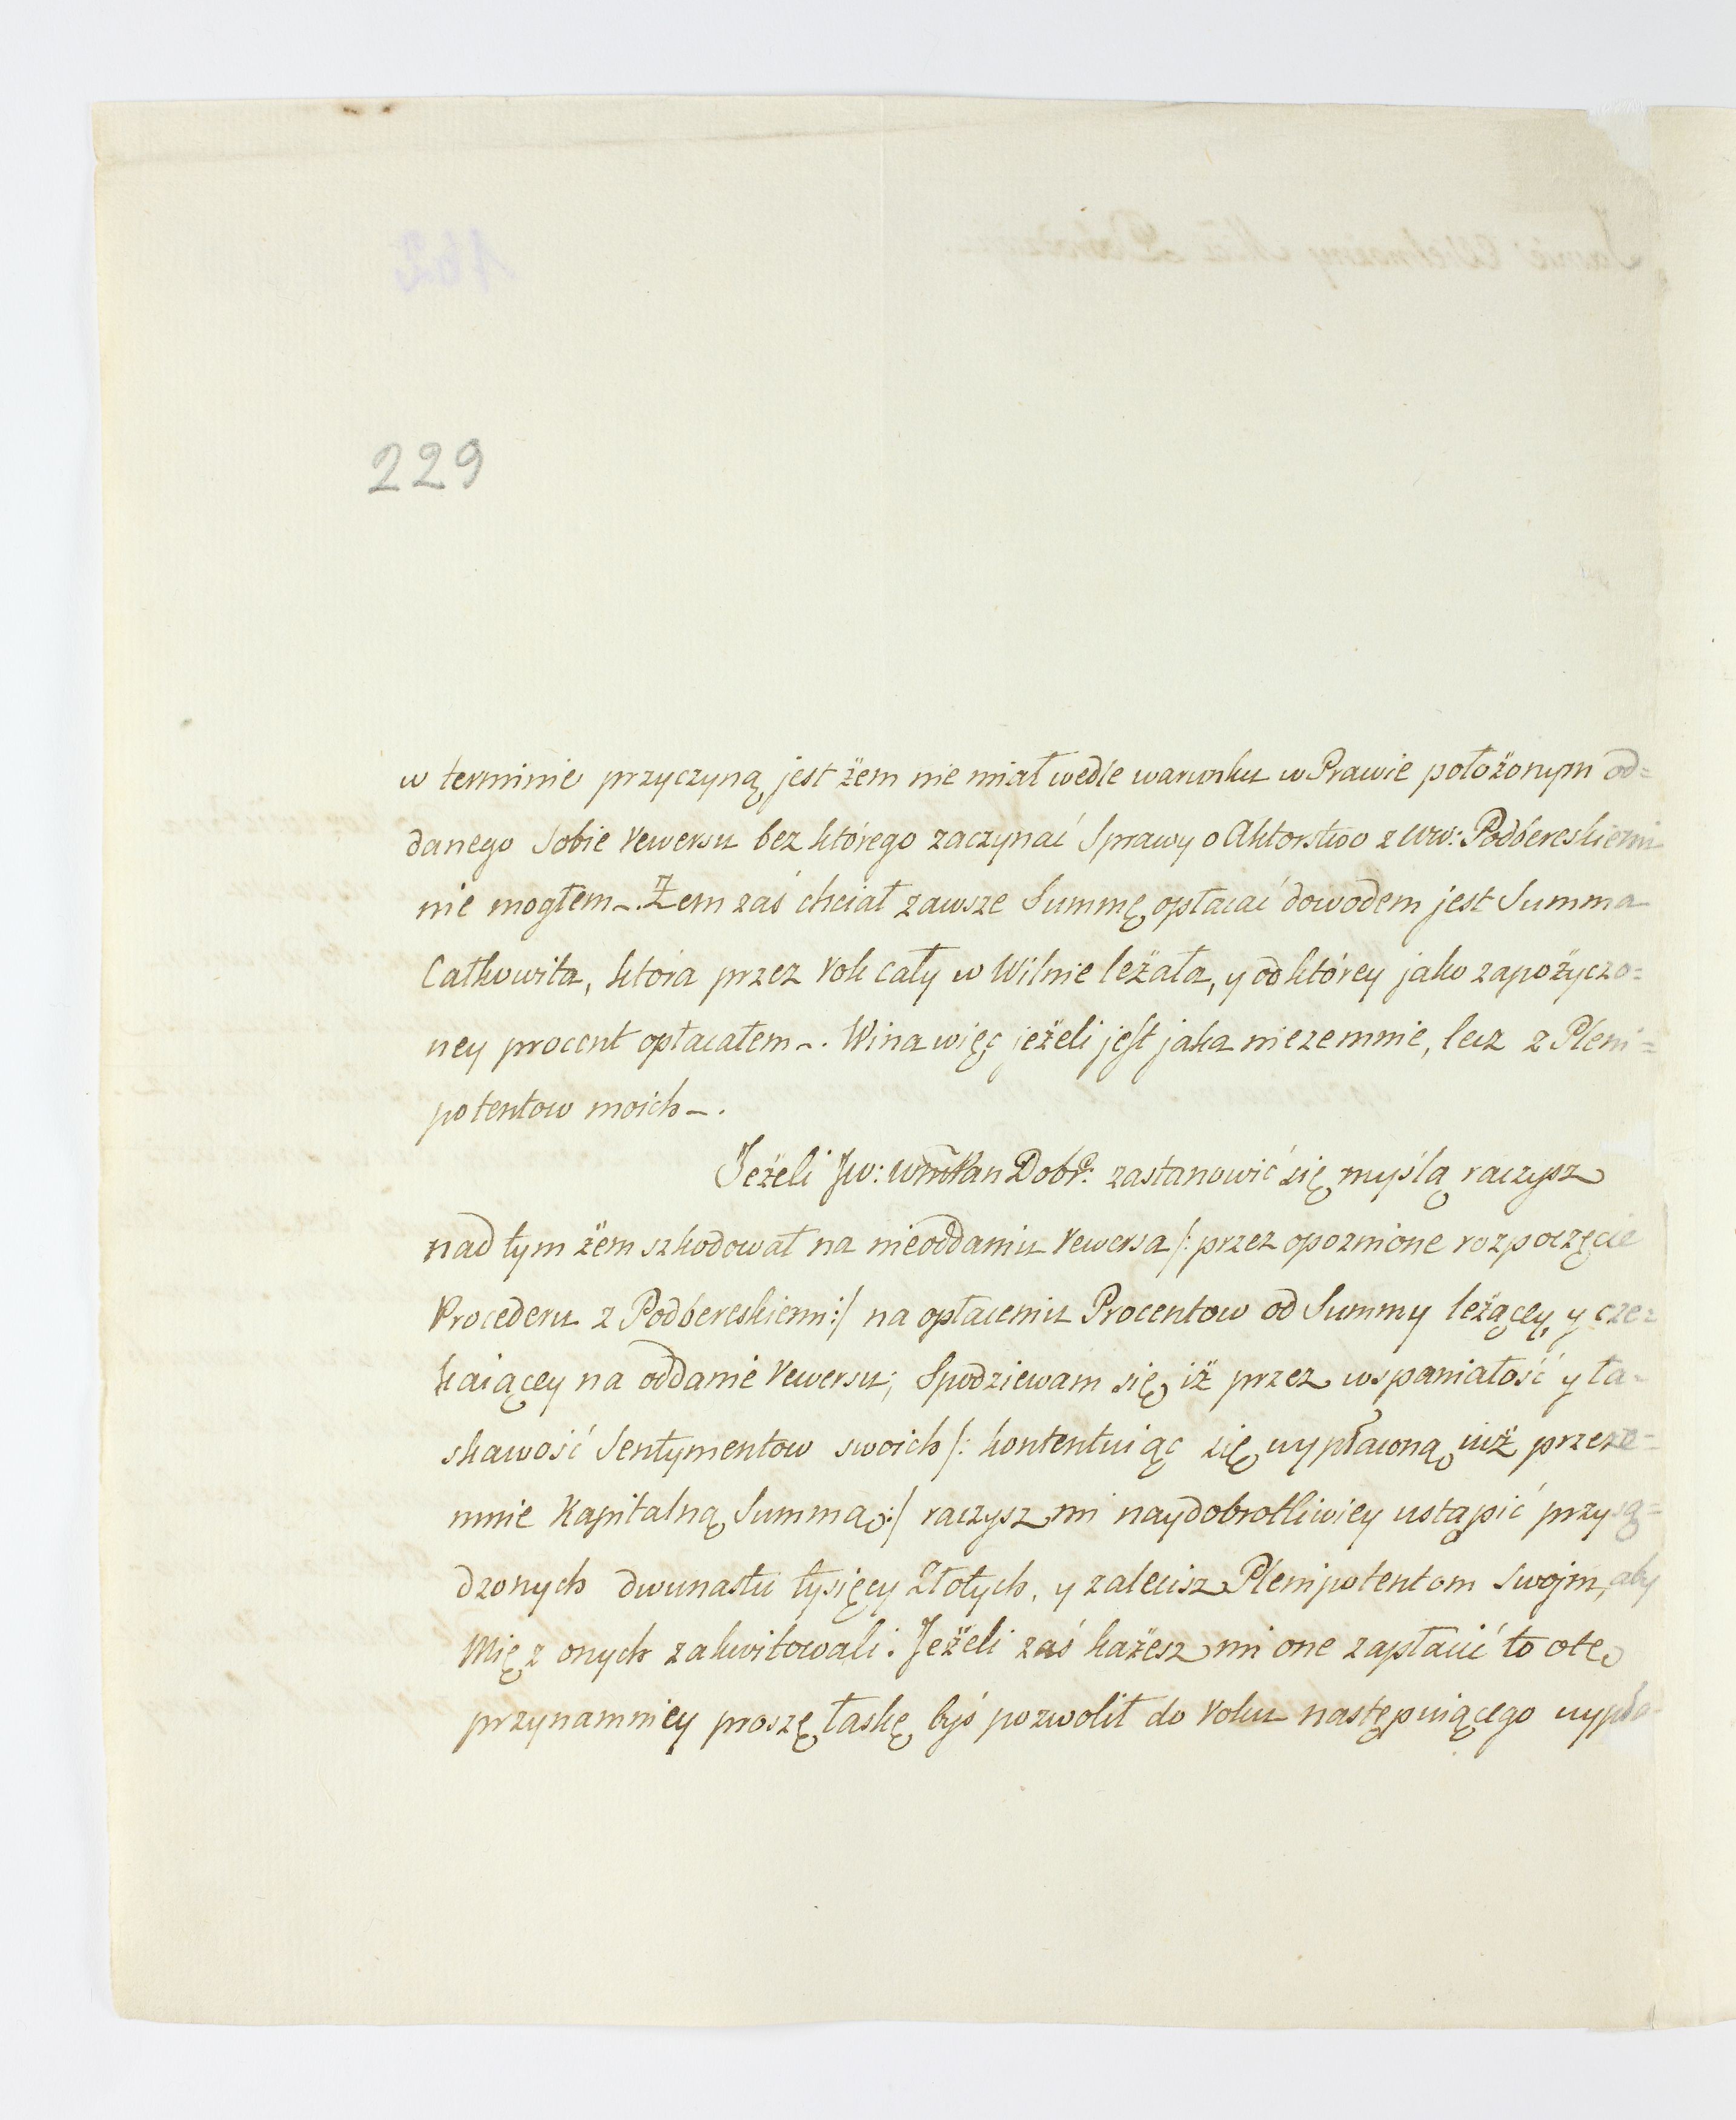 229
w terminie przyczyną jest żem nie miał wedle warunku w Prawie położonym od=
danego Sobie rewersu bez którego zaczynać Sprawy o Aktorstwo z WW: Podbereskiemi
nie mogłem. Żem zaś chciał zawsze Summę opłacać dowodem jest Summa
Całkowita, ktora przez rok cały w Wilnie leżała, y od którey jako zapożyczo=
ney procent opłacałem. Wina więc jeżeli jest jaka nie ze mnie, lecz z Pleni=
potentow moich.
Jeżeli JW: WMPan Dobr: zastanowić się myślą raczysz
nad tym żem szkodował na nieoddaniu rewersa /: przez opoznione rozpoczęcie
Procederu z Podbereskiemi :/ na opłaceniu Procentow od Summy leżącey, y cze=
kaiącey na oddanie rewersu; Spodziewam się iż przez wspaniałość y ła=
skawość Sentymentow swoich /: kontentuiąc się wypłaconą iuż przeze=
mnie Kapitalną Summą :/ raczysz mi naydobrotliwiey ustąpić przysą=
dzonych dwunastu tysięcy Złotych, y zalecisz Plenipotentom Swojm, aby
Mię z onych zakwitowali. Jeżeli zaś każesz mi one zapłacić to o tę
przynamniey proszę łaskę byś pozwolił do roku następuiącego wypła=